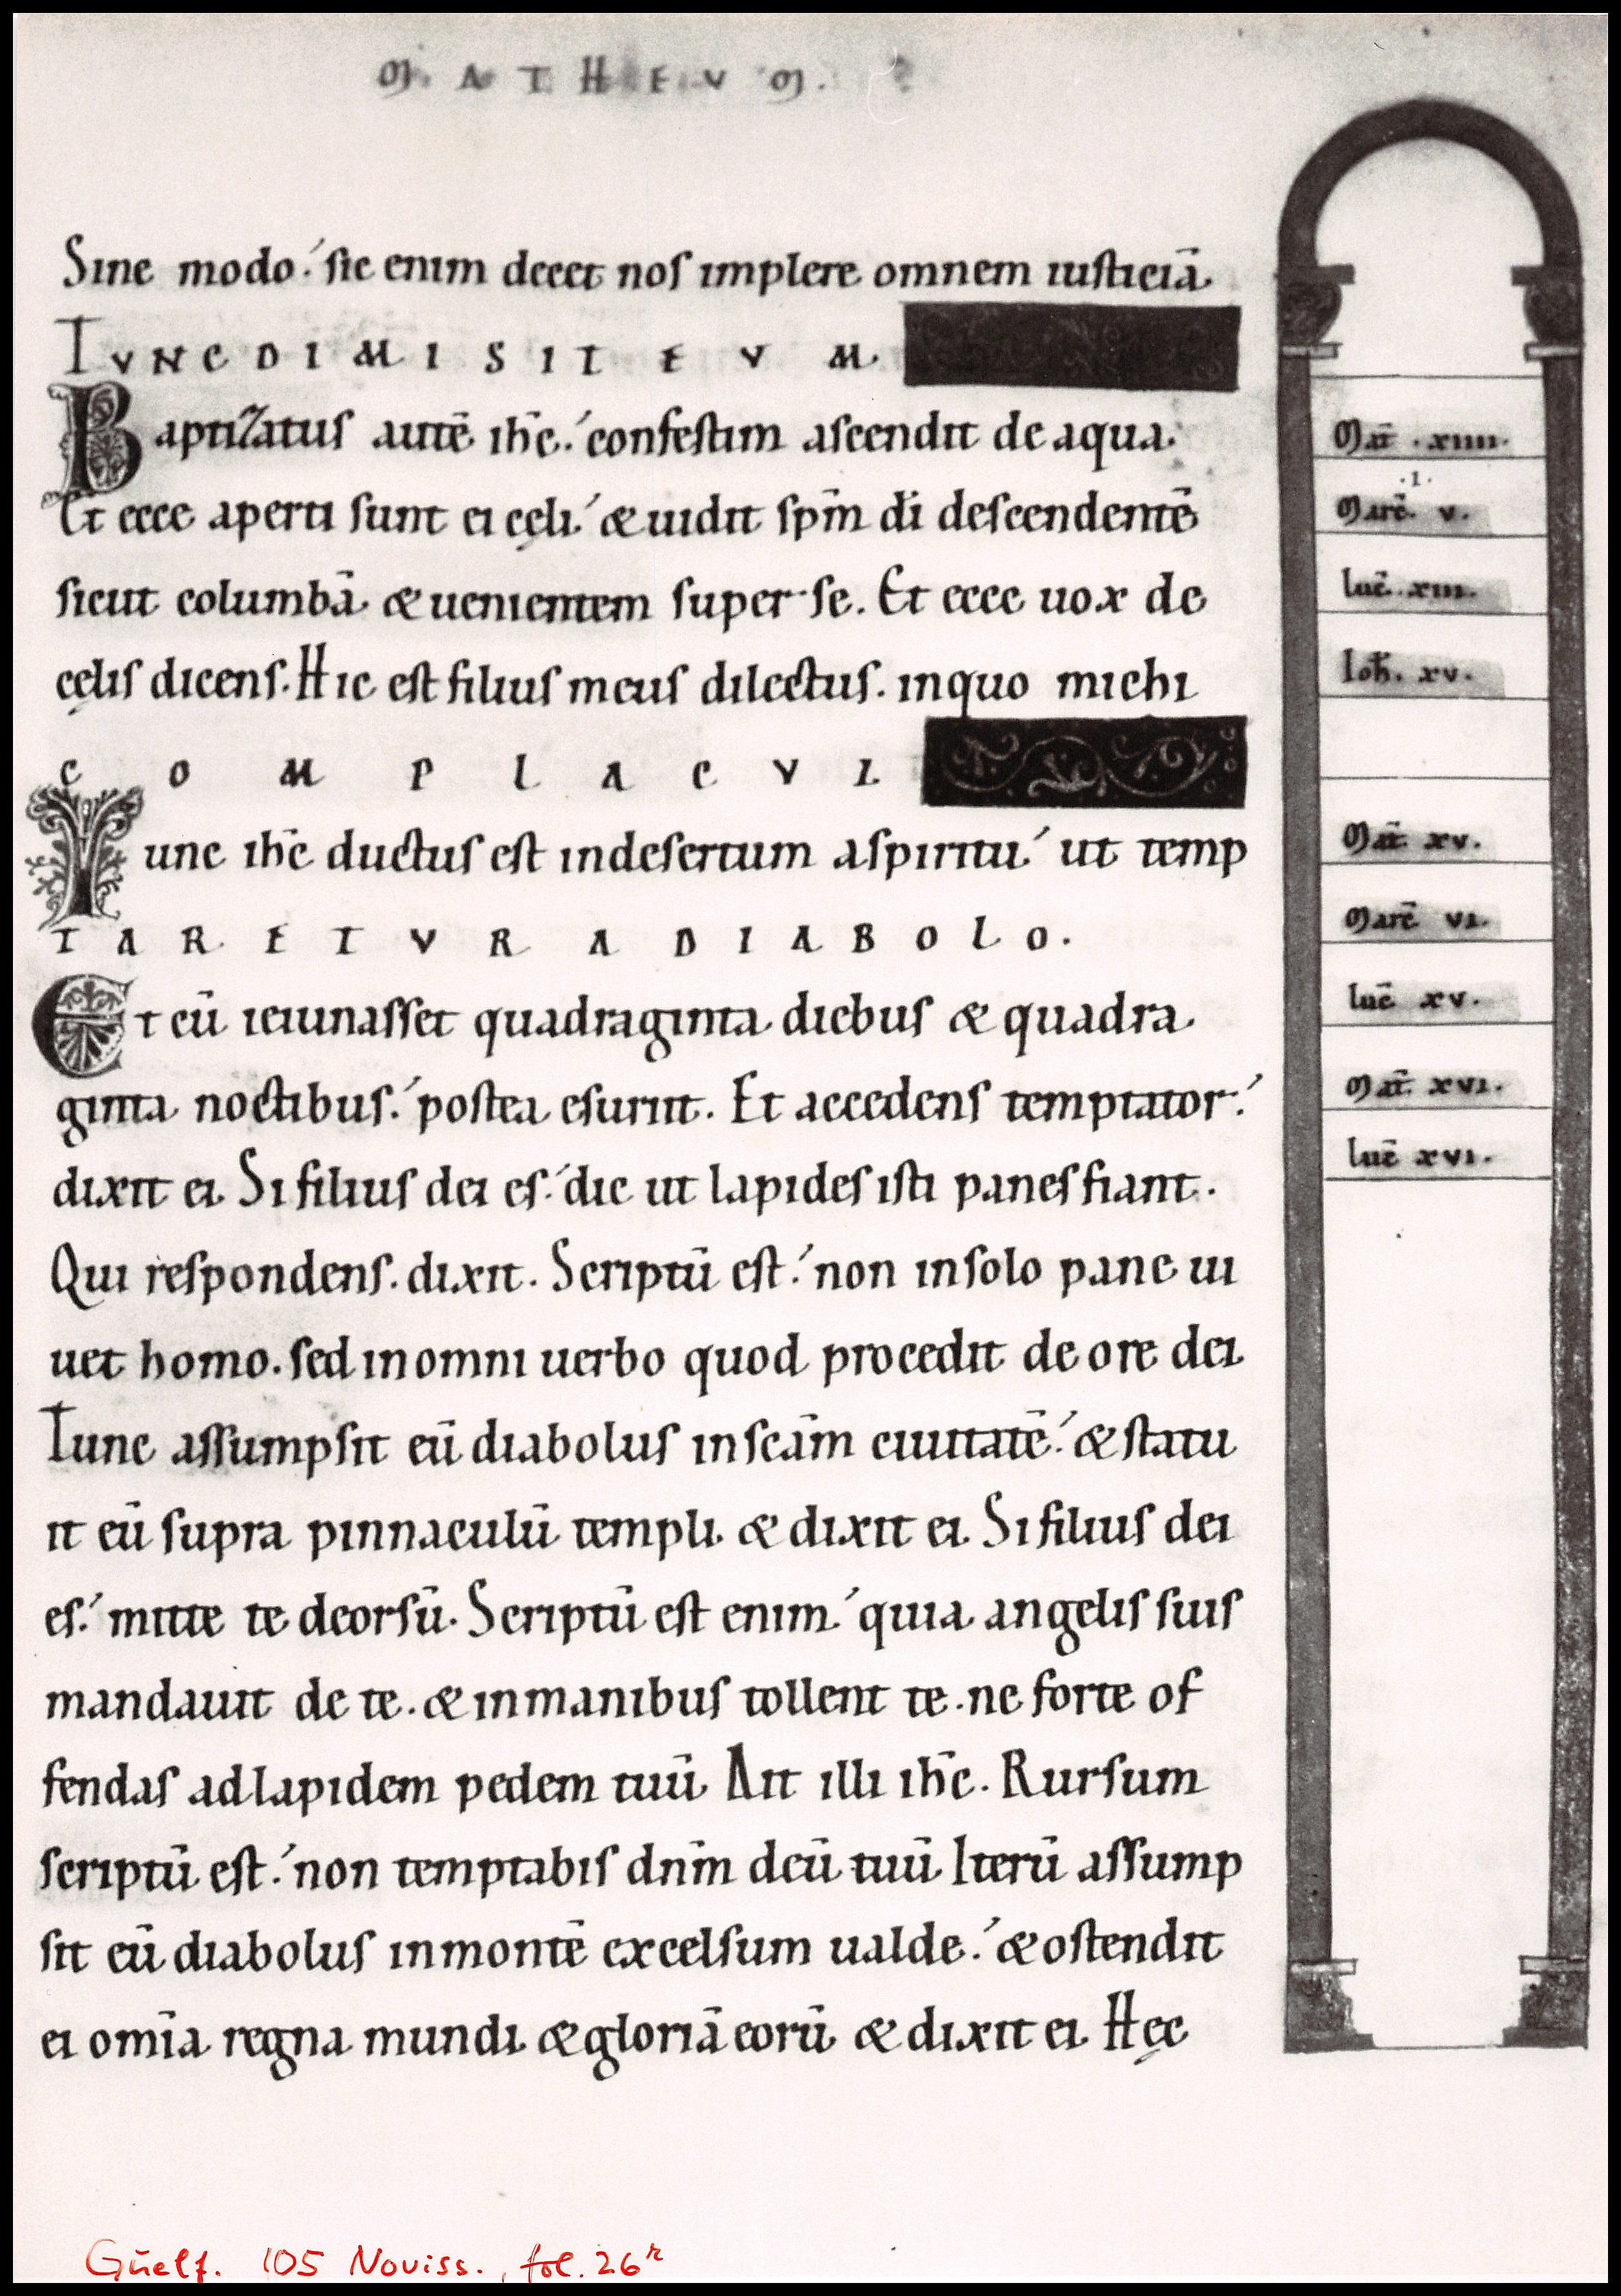 MATHEUM.
Sine modo. sic enim decet nos implere omnem iusticiā
TUNC DIMISIT EUM.
Baptizatus autē ih̄c. confestim ascendit de aqua.
Et ecce aperti sunt ei cęli. & uidit sp̄m dī descendentē
sicut columbā & uenientem super se. Et ecce uox de
cęlis dicens. Hic est filius meus dilectus. in quo michi
COMPLACUI
Tunc ih̄c ductus est in desertum a spiritu. ut temp
TARETUR A DIABOLO.
Et cū ieiunasset quadraginta diebus & quadra
ginta noctibus. postea esuriit. Et accedens temptator.
dixit ei Si filius dei es. dic ut lapides isti panes fiant.
Qui respondens. dixit. Scriptū est. non in solo pane ui
uet homo. sed in omni uerbo quod procedit de ore dei
Tunc assumpsit eū diabolus in sc̄am ciuitatē. & statu
it eū supra pinnaculū templi & dixit ei Si filius dei
es. mitte te deorsū. Scriptū est enim. quia angelis suis
mandauit de te. & in manibus tollent te. ne forte of
fendas ad lapidem pedem tuū Ait illi ih̄c. Rursum
scriptū est. non temptabis dn̄m deū tuū Iterū assump
sit eū diabolus in montē excelsum ualde. & ostendit
ei om̄ia regna mundi & gloriā eorū & dixit ei Hęc
Mat̄ .xiiii.
.i.
Marc̄. v.
luc̄. xiii.
Ioh̄. xv.
Mat̄ xv.
Marc̄ vi.
luc̄ xv.
Mat̄. xvi.
luc̄ xvi.
Guelf. 105 Noviss., fol. 26ʳ